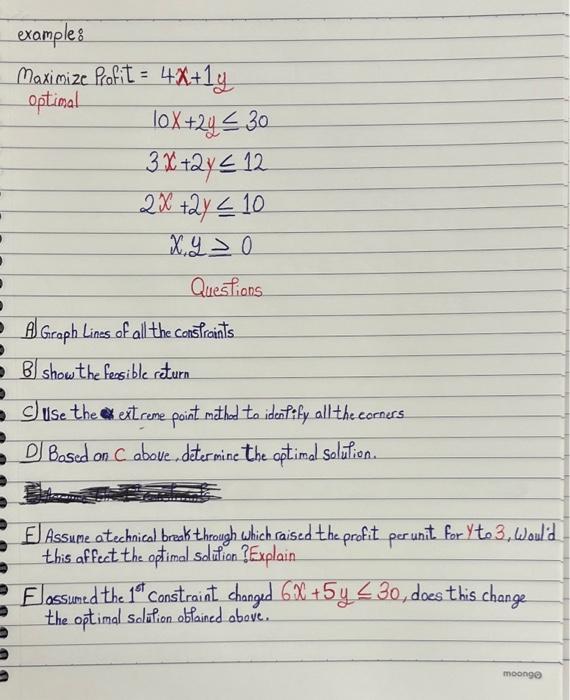 example:
Maximize Profit = 4X+1y
optimal
10X+2y ≤ 30
3X+2y ≤ 12
2X+2y ≤ 10
X,y ≥ 0
Questions
A) Graph Lines of all the constraints
B) show the feasible return
C) Use the extreme point method to identify all the corners
D) Based on C above, determine the optimal solution.
E) Assume a technical break through which raised the profit per unit for Y to 3, Would
this affect the optimal solution? Explain
F) assumed the 1st constraint changed 6X+5y ≤ 30, does this change
the optimal solution obtained above.
moongo